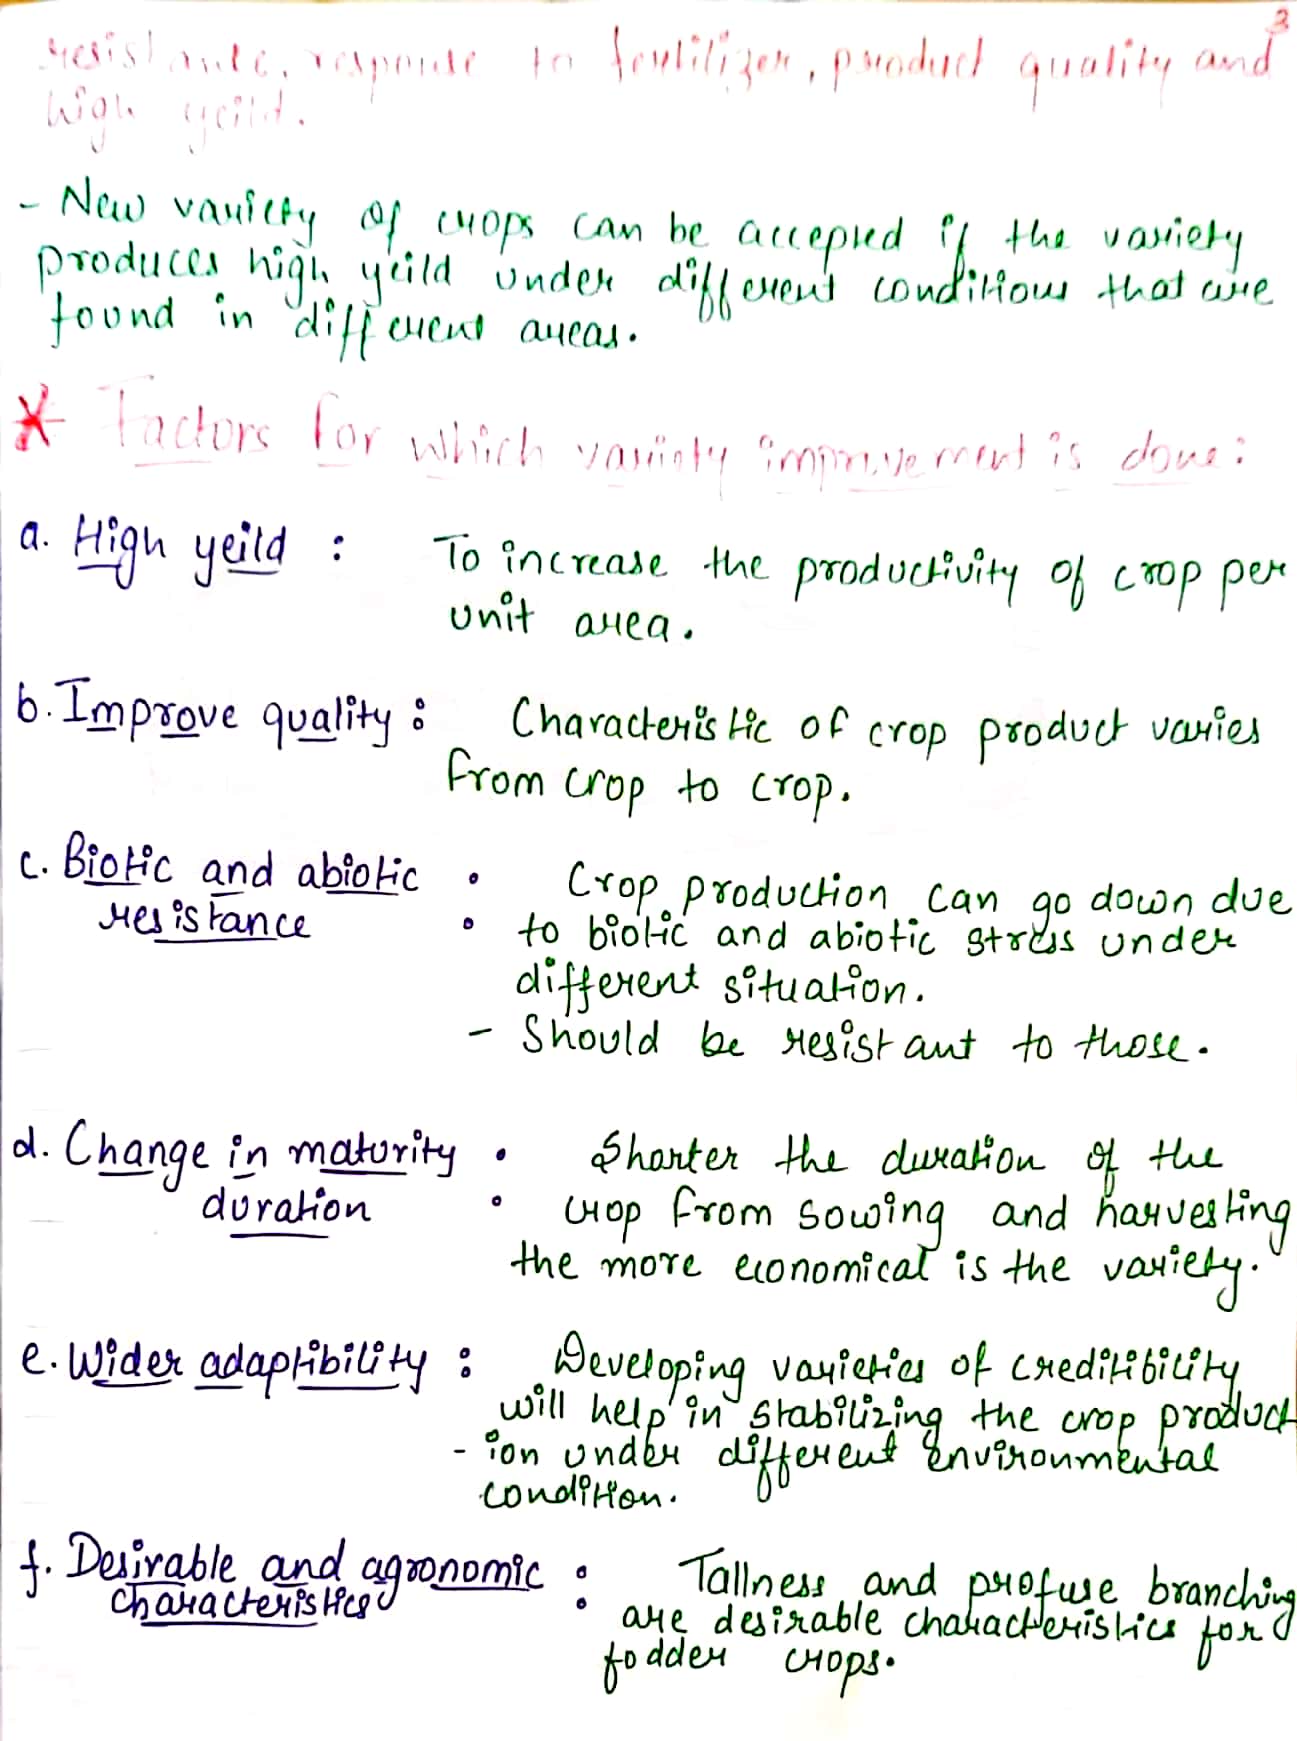 3
resistance, response to fertilizer, product quality and
high yeild.
- New variety of crops can be accepted if the variety
produces high yeild under different conditions that are
found in different areas.
* Factors for which variety improvement is done:
a. High yeild : To increase the productivity of crop per
unit area.
b. Improve quality : Characteristic of crop product varies
from crop to crop.
c. Biotic and abiotic resistance : Crop production can go down due
to biotic and abiotic stress under
different situation.
- Should be resistant to those.
d. Change in maturity duration : Shorter the duration of the
crop from sowing and harvesting
the more economical is the variety.
e. Wider adaptibility : Developing varieties of creditibility
will help in stabilizing the crop product
- ion under different environmental
condition.
f. Desirable and agronomic characteristics : Tallness and profuse branching
are desirable characteristics for
fodder crops.